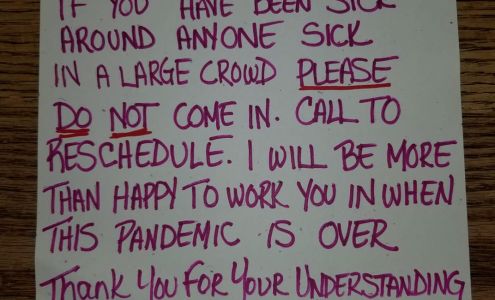 IF YOU HAVE BEEN SICK
AROUND ANYONE SICK
IN A LARGE CROWD PLEASE
DO NOT COME IN. CALL TO
RESCHEDULE. I WILL BE MORE
THAN HAPPY TO WORK YOU IN WHEN
THIS PANDEMIC IS OVER
Thank You For Your UNDERSTANDING